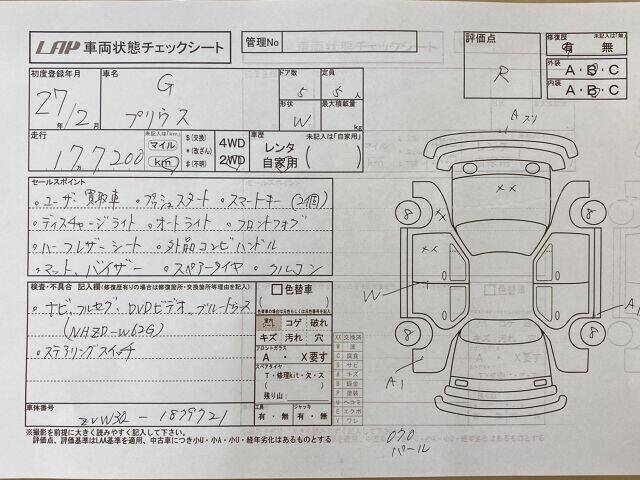 LAP 車両状態チェックシート
管理No
評価点
R
修復歴 未記入は「無」
有・無
外装 A・B・C
内装 A・B・C
初度登録年月
27年 2月
車名
G
プリウス
ドア数 5
定員 5人
形状 W
最大積載量 kg
走行 未記入は「km」
17万7200
マイル
km
$(交換)
*(改ざん)
#(不明)
4WD
2WD
車歴 未記入は「自家用」
レンタ
自家用
A スリ
セールスポイント
・ユーザー買取車 ・プッシュスタート ・スマートキー(2個)
・ディスチャージライト ・オートライト ・フロントフォグ
・ハーフレザーシート ・外品コンビハンドル
・マット、バイザー ・スペアータイヤ ・クルコン
検査・不具合 記入欄(修復歴有りの場合は修復箇所・交換箇所等理由を記入)
・ナビ、フルセグ、DVDビデオ、ブルートゥース
(NHZD-W62G)
・ステアリングスイッチ
色替車
色替車の場合は元色もしくは元色番号を記入
室内
コゲ 破れ
キズ 汚れ 穴
フロントガラス
A ・ X要す
スペアタイヤ
T・修理kit・欠・ス
残り山
工具 有・無
ジャッキ 有・無
車体番号
ZVW30-1879721
8
8
8
8
XX
XX
W
A1
A1
070
パール
※撮影を前提に大きく読みやすく記入して下さい。
評価点、評価基準はLAA基準を適用、中古車につき小U・小A・小U・経年劣化はあるものとする